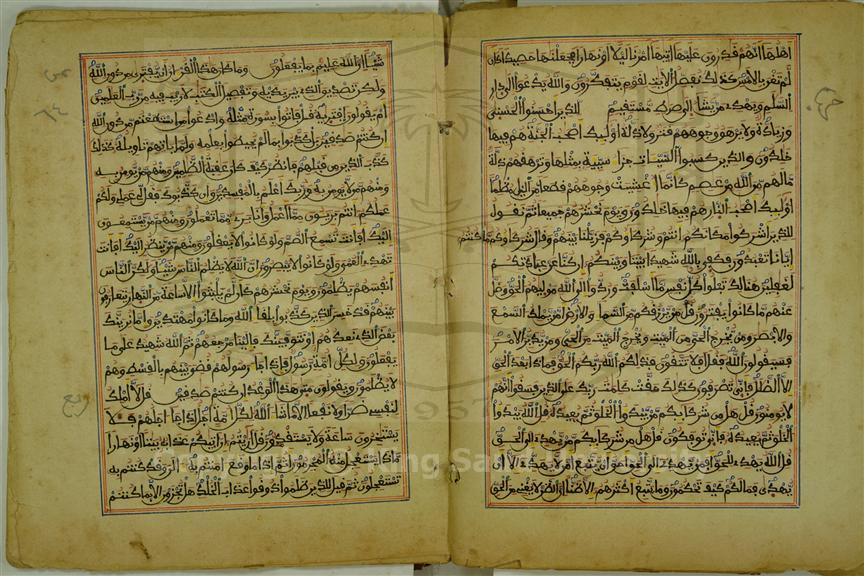 اهلها انهم قدرون عليها اتيها امرنا ليلا او نهارا فجعلنها حصيدا كان
لم تغن بالامس كذلك نفصل الايت لقوم يتفكرون والله يدعوا الى دار
السلم ويهدي من يشا الى صرط مستقيم للذين احسنوا الحسنى
وزيادة ولا يرهق وجوههم قتر ولا ذلة اوليك اصحب الجنة هم فيها
خلدون والذين كسبوا السيات جزا سيية بمثلها وترهقهم ذلة
ما لهم من الله من عصم كانما اغشيت وجوههم قطعا من اليل مظلما
اوليك اصحب النار هم فيها خلدون ويوم نحشرهم جميعا ثم نقول
للذين اشركوا مكانكم انتم وشركاوكم فزيلنا بينهم وقال شركاوهم ما كنتم
ايانا تعبدون فكفى بالله شهيدا بيننا وبينكم ان كنا عن عبادتكم
لغفلين هنالك تبلوا كل نفس ما اسلفت وردوا الى الله موليهم الحق وضل
عنهم ما كانوا يفترون قل من يرزقكم من السما والارض امن يملك السمع
والابصر ومن يخرج الحي من الميت ويخرج الميت من الحي ومن يدبر الامر
فسيقولون الله فقل افلا تتقون فذلكم الله ربكم الحق فماذا بعد الحق
الا الضلل فانى تصرفون كذلك حقت كلمت ربك على الذين فسقوا انهم
لا يومنون قل هل من شركايكم من يبدوا الخلق ثم يعيده قل الله يبدوا
الخلق ثم يعيده فانى توفكون قل هل من شركايكم من يهدي الى الحق
قل الله يهدي للحق افمن يهدي الى الحق احق ان يتبع امن لا يهدي الا ان
يهدى فما لكم كيف تحكمون وما يتبع اكثرهم الا ظنا ان الظن لا يغني من الحق
شيا ان الله عليم بما يفعلون وما كان هذا القران ان يفترى من دون الله
ولكن تصديق الذي بين يديه وتفصيل الكتب لا ريب فيه من رب العلمين
ام يقولون افتريه قل فاتوا بسورة مثله وادعوا من استطعتم من دون الله
ان كنتم صدقين بل كذبوا بما لم يحيطوا بعلمه ولما ياتهم تاويله كذلك
كذب الذين من قبلهم فانظر كيف كان عقبة الظلمين ومنهم من يومن به
ومنهم من لا يومن به وربك اعلم بالمفسدين وان كذبوك فقل لي عملي ولكم
عملكم انتم بريون مما اعمل وانا بري مما تعملون ومنهم من يستمعون
اليك افانت تسمع الصم ولو كانوا لا يعقلون ومنهم من ينظر اليك افانت
تهدي العمي ولو كانوا لا يبصرون ان الله لا يظلم الناس شيا ولكن الناس
انفسهم يظلمون ويوم نحشرهم كان لم يلبثوا الا ساعة من النهار يتعارفون
بينهم قد خسر الذين كذبوا بلقا الله وما كانوا مهتدين واما نرينك
بعض الذي نعدهم او نتوفينك فالينا مرجعهم ثم الله شهيد على ما
يفعلون ولكل امة رسول فاذا جا رسولهم قضي بينهم بالقسط وهم
لا يظلمون ويقولون متى هذا الوعد ان كنتم صدقين قل لا املك
لنفسي ضرا ولا نفعا الا ما شا الله لكل امة اجل اذا جا اجلهم فلا
يستخرون ساعة ولا يستقدمون قل اريتم ان اتيكم عذابه بيتا او نهارا
ماذا يستعجل منه المجرمون اثم اذا ما وقع امنتم به الن وقد كنتم به
تستعجلون ثم قيل للذين ظلموا ذوقوا عذاب الخلد هل تجزون الا بما كنتم